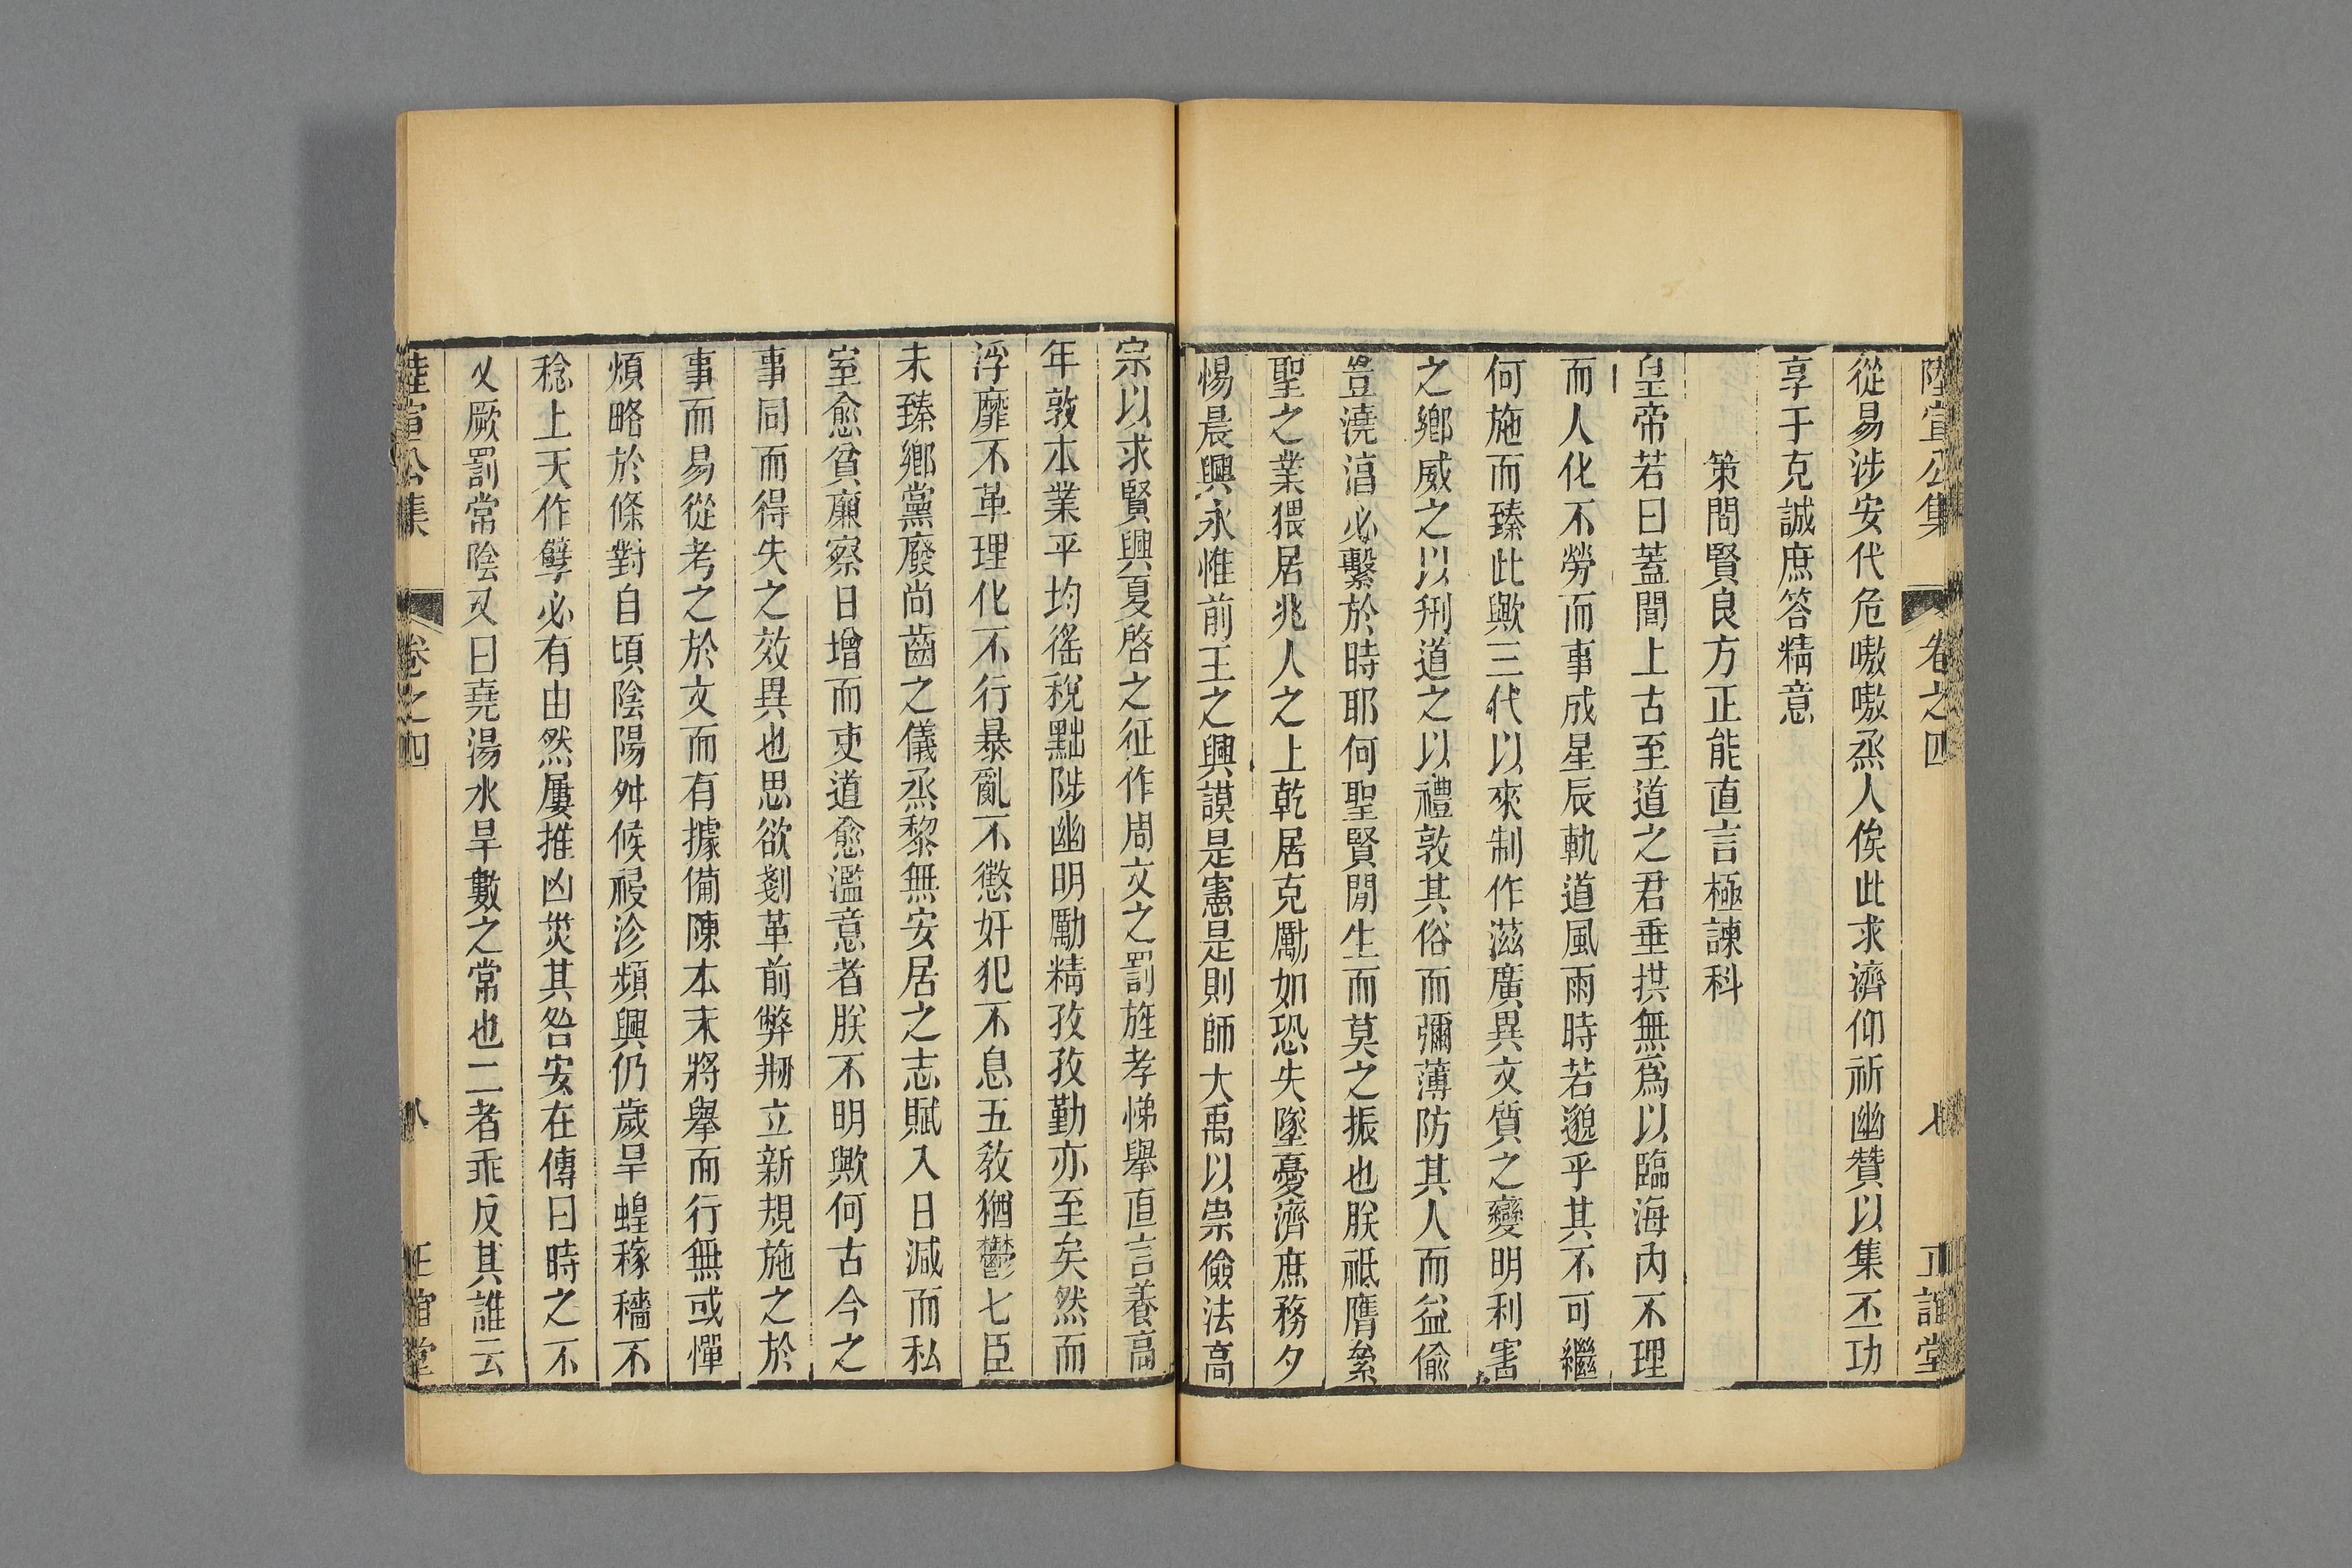 陸宣公集 卷之四 八 正誼堂
從易涉安代危嗷嗷烝人俟此求濟仰祈幽贊以集丕功
享于克誠庶答精意
策問賢良方正能直言極諫科
皇帝若曰蓋聞上古至道之君垂拱無爲以臨海內不理
而人化不勞而事成星辰軌道風雨時若邈乎其不可繼
何施而臻此歟三代以來制作滋廣異文質之變明利害
之鄉威之以刑道之以禮敦其俗而彌薄防其人而益偸
豈澆淳必繫於時耶何聖賢閒生而莫之振也朕祗膺絫
聖之業猥居兆人之上乾居克勵如恐失墜憂濟庶務夕
惕晨興永惟前王之興謨是憲是則師大禹以崇儉法高
宗以求賢興夏啓之征作周文之罰旌孝悌舉直言養高
年敦本業平均徭稅黜陟幽明勵精孜孜勤亦至矣然而
浮靡不革理化不行暴亂不懲奸犯不息五敎猶鬱七臣
未臻鄉黨廢尚齒之儀烝黎無安居之志賦入日減而私
室愈貧廉察日增而吏道愈濫意者朕不明歟何古今之
事同而得失之效異也思欲剗革前弊刱立新規施之於
事而易從考之於文而有據備陳本末將舉而行無或憚
煩略於條對自頃陰陽舛候祲沴頻興仍歲旱蝗稼穡不
稔上天作孽必有由然屢推凶災其咎安在傳曰時之不
乂厥罰常陰又曰堯湯水旱數之常也二者乖反其誰云
陸宣公集 卷之四 八 正誼堂